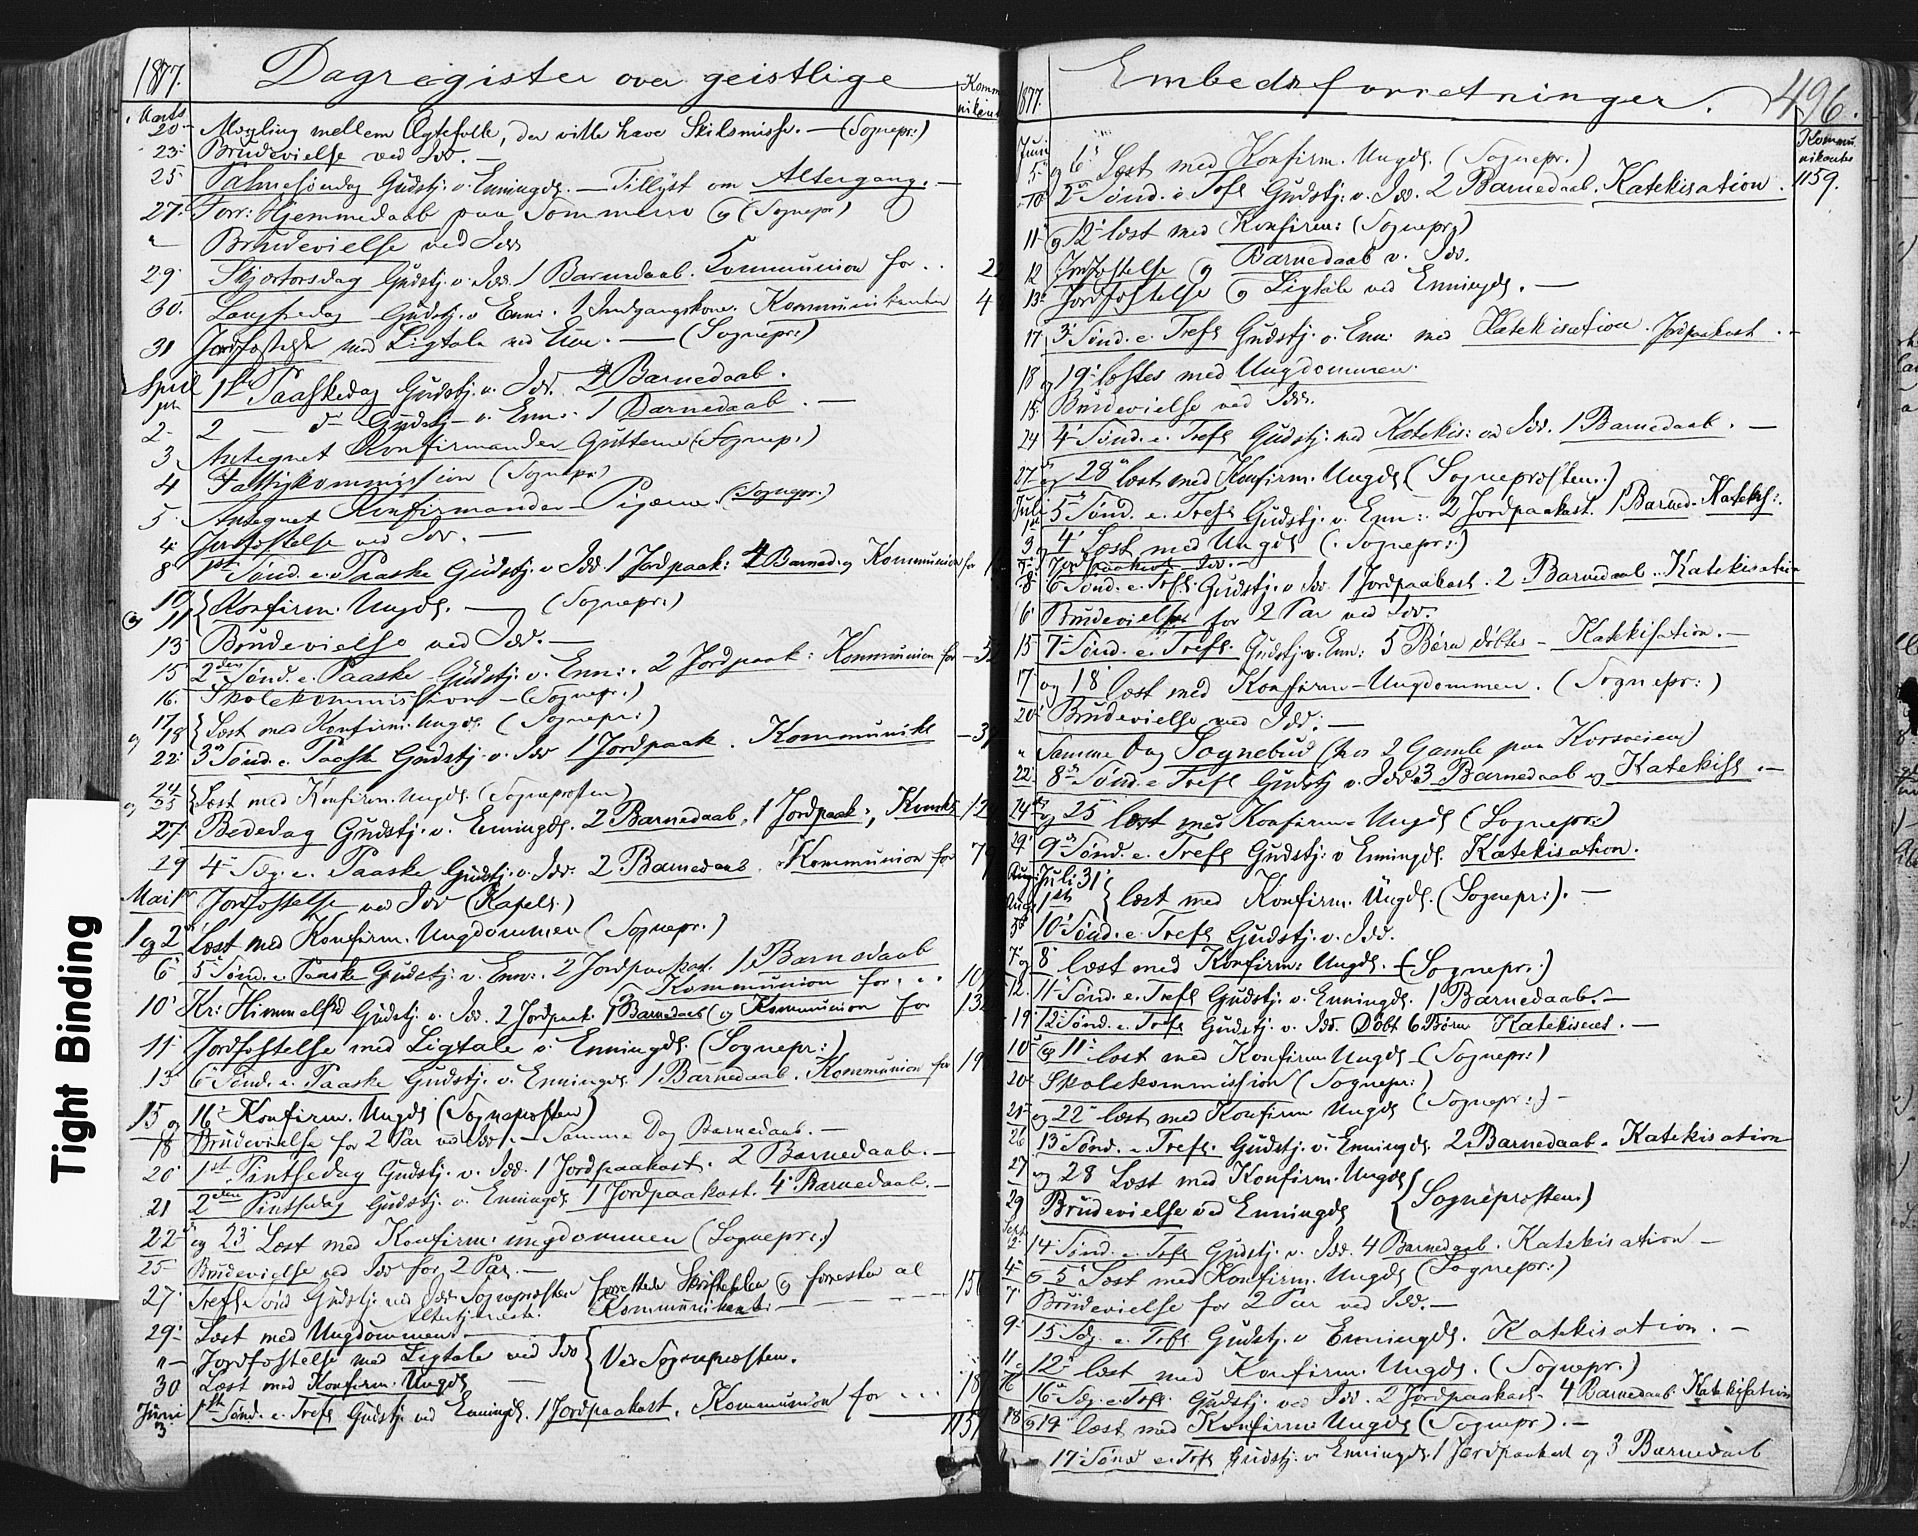 1877. Dagregister over geistlige
Kommunikant
Marts
20 Mægling mellem Ægtefolk, der ville have Skilsmisse. — (Sognepr:)
23 Brudevielse ved Idd. —
25 Palmesøndag Gudstj. v. Enningd. — Tillyst om Altergang. —
27 Forr: Hjemmedaab paa (Sognepr)
" Brudevielse ved Idd
29 Skjærtorsdag Gudstj. v. Idd. 1 Barnedaab. Communion for . . 2
30. Langfredag Gudstj. v Enn. 1 Indgangskone. Kommunikanter 4
31 Jordfæstelse med Ligtale ved Enn. — (Sognepr:)
April
1 1st Paaskedag Gudstj. v. Idd. 2 Barnedaab.
2 2 — d— Gudstj — v. Enn. 1 Barnedaab. —
3 Antegnet Konfirmander Gutterne (Sognep.)
4 Fattigkommission (Sognepr)
5. Antegnet Konfirmander Pigerne. (Sognepr.)
4 Jordfæstelse ved Idd. —
8 1st Sønd. e. Paaske Gudstj. v Idd 1 Jordpaak: 4 Barned. og Kommunion for
10 og 11 Konfirm. Ungd. — (Sognepr:)
13 Brudevielse ved Idd. —
15 2den Sønd. e. Paaske Gudstj. v. Enn:. 2 Jordpaak: Kommunion for — 5
16. Skolekommission — (Sognepr.)
17 og 18 Læst med Konfirm. Ungd. (Sognepr:)
22 3 Sønd. e. Paaske Gudstj. v. Idd 1 Jordpaak. Kommunike — 3
24 og 25 Læst med Konfirm. Ungd. (Sogneprosten)
27 Bededag Gudstj. v. Enningd. 2 Barnedaab, 1 Jordpaak:, Komk. 12
29 4 Søg. e. Paaske Gudstj. v. Idd. 2 Barnedaab. Kommunion for 7
Mai 1 Jordfæstelse ved Idd (Kapel.)
1 og 2 Læst med Konfirm. Ungdommen (Sognepr.)
6 5 Sønd. e. Paaske Gudstj. v. Enn:. 2 Jordpaakast. 1 Barnedaab
Kommunion for . . 10
10 Kr: Himmelfd Gudstj. v. Idd. 2 Jordpaak. Barnedaab og Kommunion for 13
11 Jordfæstelse med Ligtale v. Enningd. (Sognepr:)
13 6 Sønd. e. Paaske Gudstj. v. Enningd. 1 Barnedaab. Kommunion for 19
15 og 16 Konfirm. Ungd (Sogneprosten)
18 Brudevielse for 2 Par ved Idd. — Samme Dag Barnedaab. —
20 1st Pintsedag Gudstj. v. Idd. 1 Jordpaakast. 2 Barnedaab. —
21 2den Pintsedag Gudstj. v. Enningd. 1 Jordpaakast. 4 Barnedaab. —
22 og 23 Læst med Konfirm: ungdommen (Sognepr:)
25 Brudevielse ved Idd for 2 Par. —
27 Trefs Sønd Gudstj. ved Idd. Sogneprosten forrettede Skriftetalen og forresten al
Altertjeneste. Kommunikant: — 15
29 Læst med Ungdommen.
" Jordfæstelse med Ligtale ved Idd
30 Læst med Konfirm. Ungd
Ved Sogneprosten.
Juni 3 1st Sønd. e. Trefs Gudstj. ved Enningd. 1 Jordpaakast. Kommunion for ... 18
1159
1877. Embedsforretninger. 496.
Kommunikants
Juni
5 og 6 Læst med Konfirm. Ungd. (Sognepr.)
10 2 Sønd. e Trefs Gudstj. v. Idd. 2 Barnedaab. Katekisation. 1159.
11 og 12 læst med Konfirm: (Sognepr)
12 Jordfæstelse og Barnedaab v. Idd.
13 Jordfæstelse og Ligtale ved Enningd. —
17 3 Sønd. e. Trefs Gudstj. v. Enn: med Katekisation. Jordpaakast. —
18 og 19 læstes med Ungdommen.
15 Brudevielse ved Idd.
24 4 Sønd. e. Trefs Gudstj. med Katekis: ved Idd. 1 Barnedaab. —
27 og 28 læst med Konfirm. Ungd (Sogneprosten.)
Juli 1st 5 Sønd. e. Trefs Gudstj. v. Enn:. 2 Jordpaakast. 1 Barned. Katekis:.
3 og 4 Læst med Ungd (Sognepr:)
Jordpaakast Idd. —
8 6 Sønd. e. Trefs. Gudstj. v Idd. 1 Jordpaakast. 2 Barnedaab. Katekisation
6 Brudevielse for 2 Par ved Idd.
15 7 Sønd. e. Trefs Gudstj. v. Enn: 5 Børn døbtes — Katekisation. —
17 og 18 læst med Konfirm-Ungdommen. (Sognepr:)
20 Brudevielse ved Idd: —
" Samme Dag Sognebud (hos 2 Gamle paa Korsveien)
22 8 Sønd. e. Trefs Gudstj. v. Idd. 3 Barnedaab og Katekis. —
24 og 25 læst med Konfirm. Ungd (Sognepr:)
29 9 Sønd. e. Trefs Gudstj: v Enningd. Katekisation.
Juli 31 Aug 1st læst med Konfirm. Ungd. (Sognepr:). —
5 10 Sønd. e. Trefs Gudstj. v. Idd.
7 og 8 læst med Konfirm: Ungd. (Sognepr:)
12. 11 Sønd. e. Trefs Gudstj. v. Enningd. 1 Barnedaab. —
19 12 Sønd. e. Trefs Gudstj. v. Idd. Døbt 6 Børn Katekiseret. —
10 og 11 læst med Konfirm Ungd — (Sognepr:)
20 Skolekommission (Sognepr:)
21 og 22 læst med Konfirm Ungd (Sognepr:) —
26 13 Sønd. e. Trefs. Gudstj. v. Enningd. 2 Barnedaab. Katekisation
27 og 28 Læst med Konfirm. Ungd
29 Brudevielse ved Enningd
(Sogneprosten)
Sept 2 14 Sønd. e. Trfs Gudstj. v. Idd. 4 Barnedaab. Katekisation —
4 og 5 Læst med Konfirm. Ungd (Sognepr:)
7 Brudevielse for 2 Par ved Idd. —
9 15 Søg. e. Trfs Gudstj. v Enningd. Katekisation. —
11 og 12 læst med Konfirm. Ungd. (Sognepr.)
16 16 Søg. e. Trfs. Gudstj. ved Idd. 2 Jordpaakast. 4 Barnedaab. Katekisation
18 og 19 læst med Konfirm: Ungd (Sognepr). —
17 Sønd e. Trfs Gudstj. v Enningd. 1 Jordpaakast og 3 Barnedaab
Tight Binding